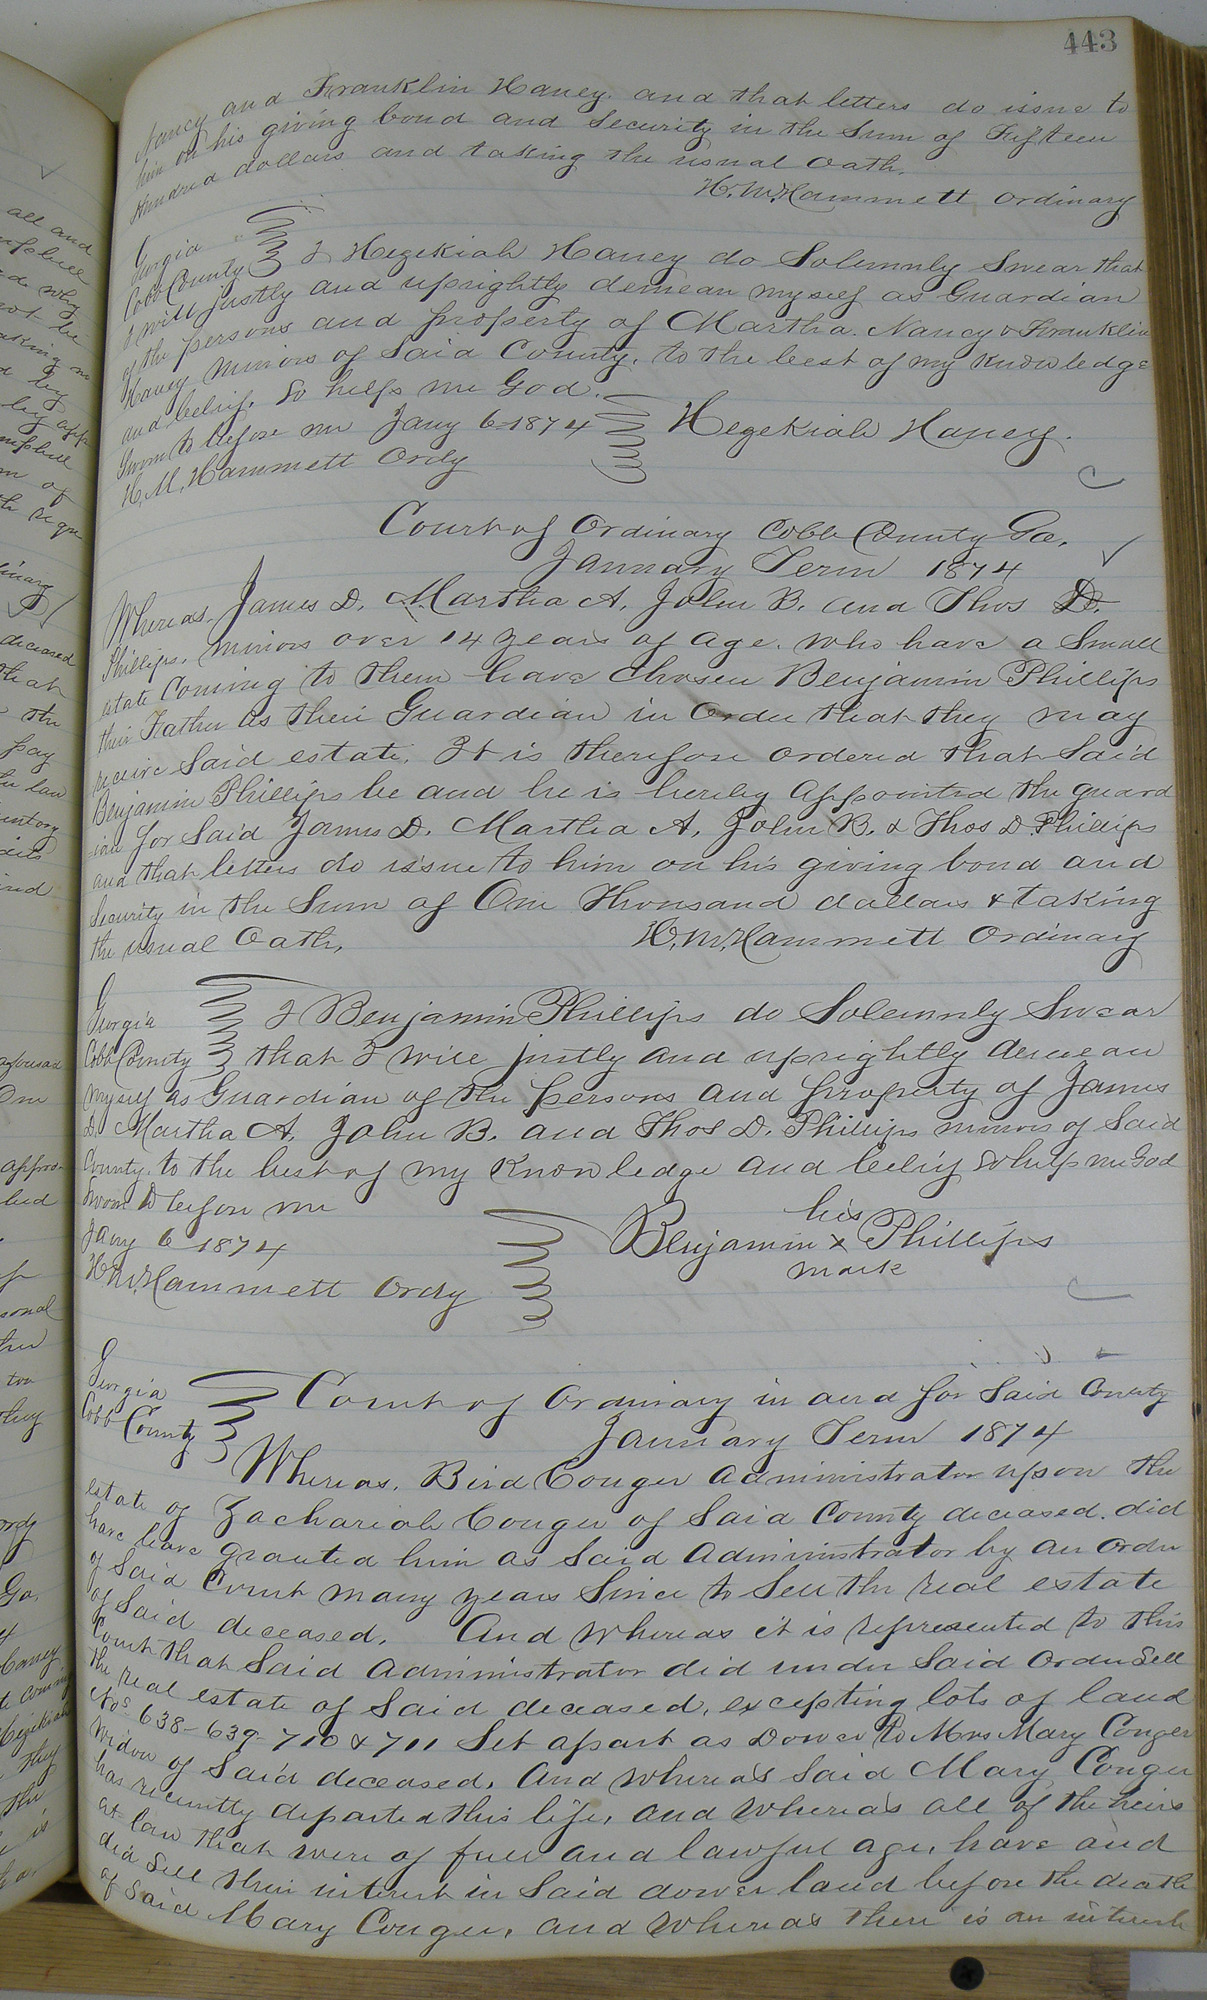 443
Nancy and Franklin Haney. and that letters do issue to
him on his giving bond and Security in the Sum of Fifteen
Hundred dollars and taking the usual Oath.
H. M. Hammett Ordinary
Georgia
Cobb County I Hezekiah Haney do Solemnly Swear that
I will justly and uprightly demean myself as Guardian
of the persons and property of Martha. Nancy & Franklin
Haney minors of Said County. to the best of my Knowledge
and belief. So helps me God.
Sworn to before me Jany 6 1874 Hezekiah Haney.
H. M. Hammett Ordy
Court of Ordinary Cobb County Ga.
January Term 1874
Whereas. James D. Martha A. John B. and Thos D.
Phillips. minors over 14 years of age. who have a Small
estate Coming to them have chosen Benjamin Phillips
their Father as their Guardian in Order that they may
receive Said estate. It is therefore ordered that Said
Benjamin Phillips be and he is hereby appointed the guard
ian for Said James D. Martha A. John B. & Thos D. Phillips
and that letters do issue to him on his giving bond and
Security in the Sum of One Thousand dollars & taking
the usual Oath. H. M. Hammett Ordinary
Georgia
Cobb County I Benjamin Phillips do Solemnly Swear
that I will justly and uprightly demean
myself as Guardian of the persons and property of James
D. Martha A. John B. and Thos D. Phillips minors of Said
County. to the best of my Knowledge and belief So help me God
Sworn to before me
Jany 6 1874
H. M. Hammett Ordy
his
Benjamin x Phillips
mark
Georgia
Cobb County Court of Ordinary in and for Said County
January Term 1874
Whereas. Bird Conger administrator upon the
estate of Zachariah Conger of Said County deceased. did
have leave granted him as Said Administrator by an Order
of Said Court many years Since to Sell the real estate
of Said deceased. And Whereas it is represented to this
Court that Said Administrator did under Said Order Sell
the real estate of Said deceased, excepting lots of land
Nos 638-639-710 & 711 Set apart as Dower to Mrs Mary Conger
Widow of Said deceased. And Whereas Said Mary Conger
has recently departed this life, and Whereas all of the heirs
at law that were of full and lawful age, have and
did Sell their interest in Said dower land before the death
of Said Mary Conger, and Whereas there is an interest